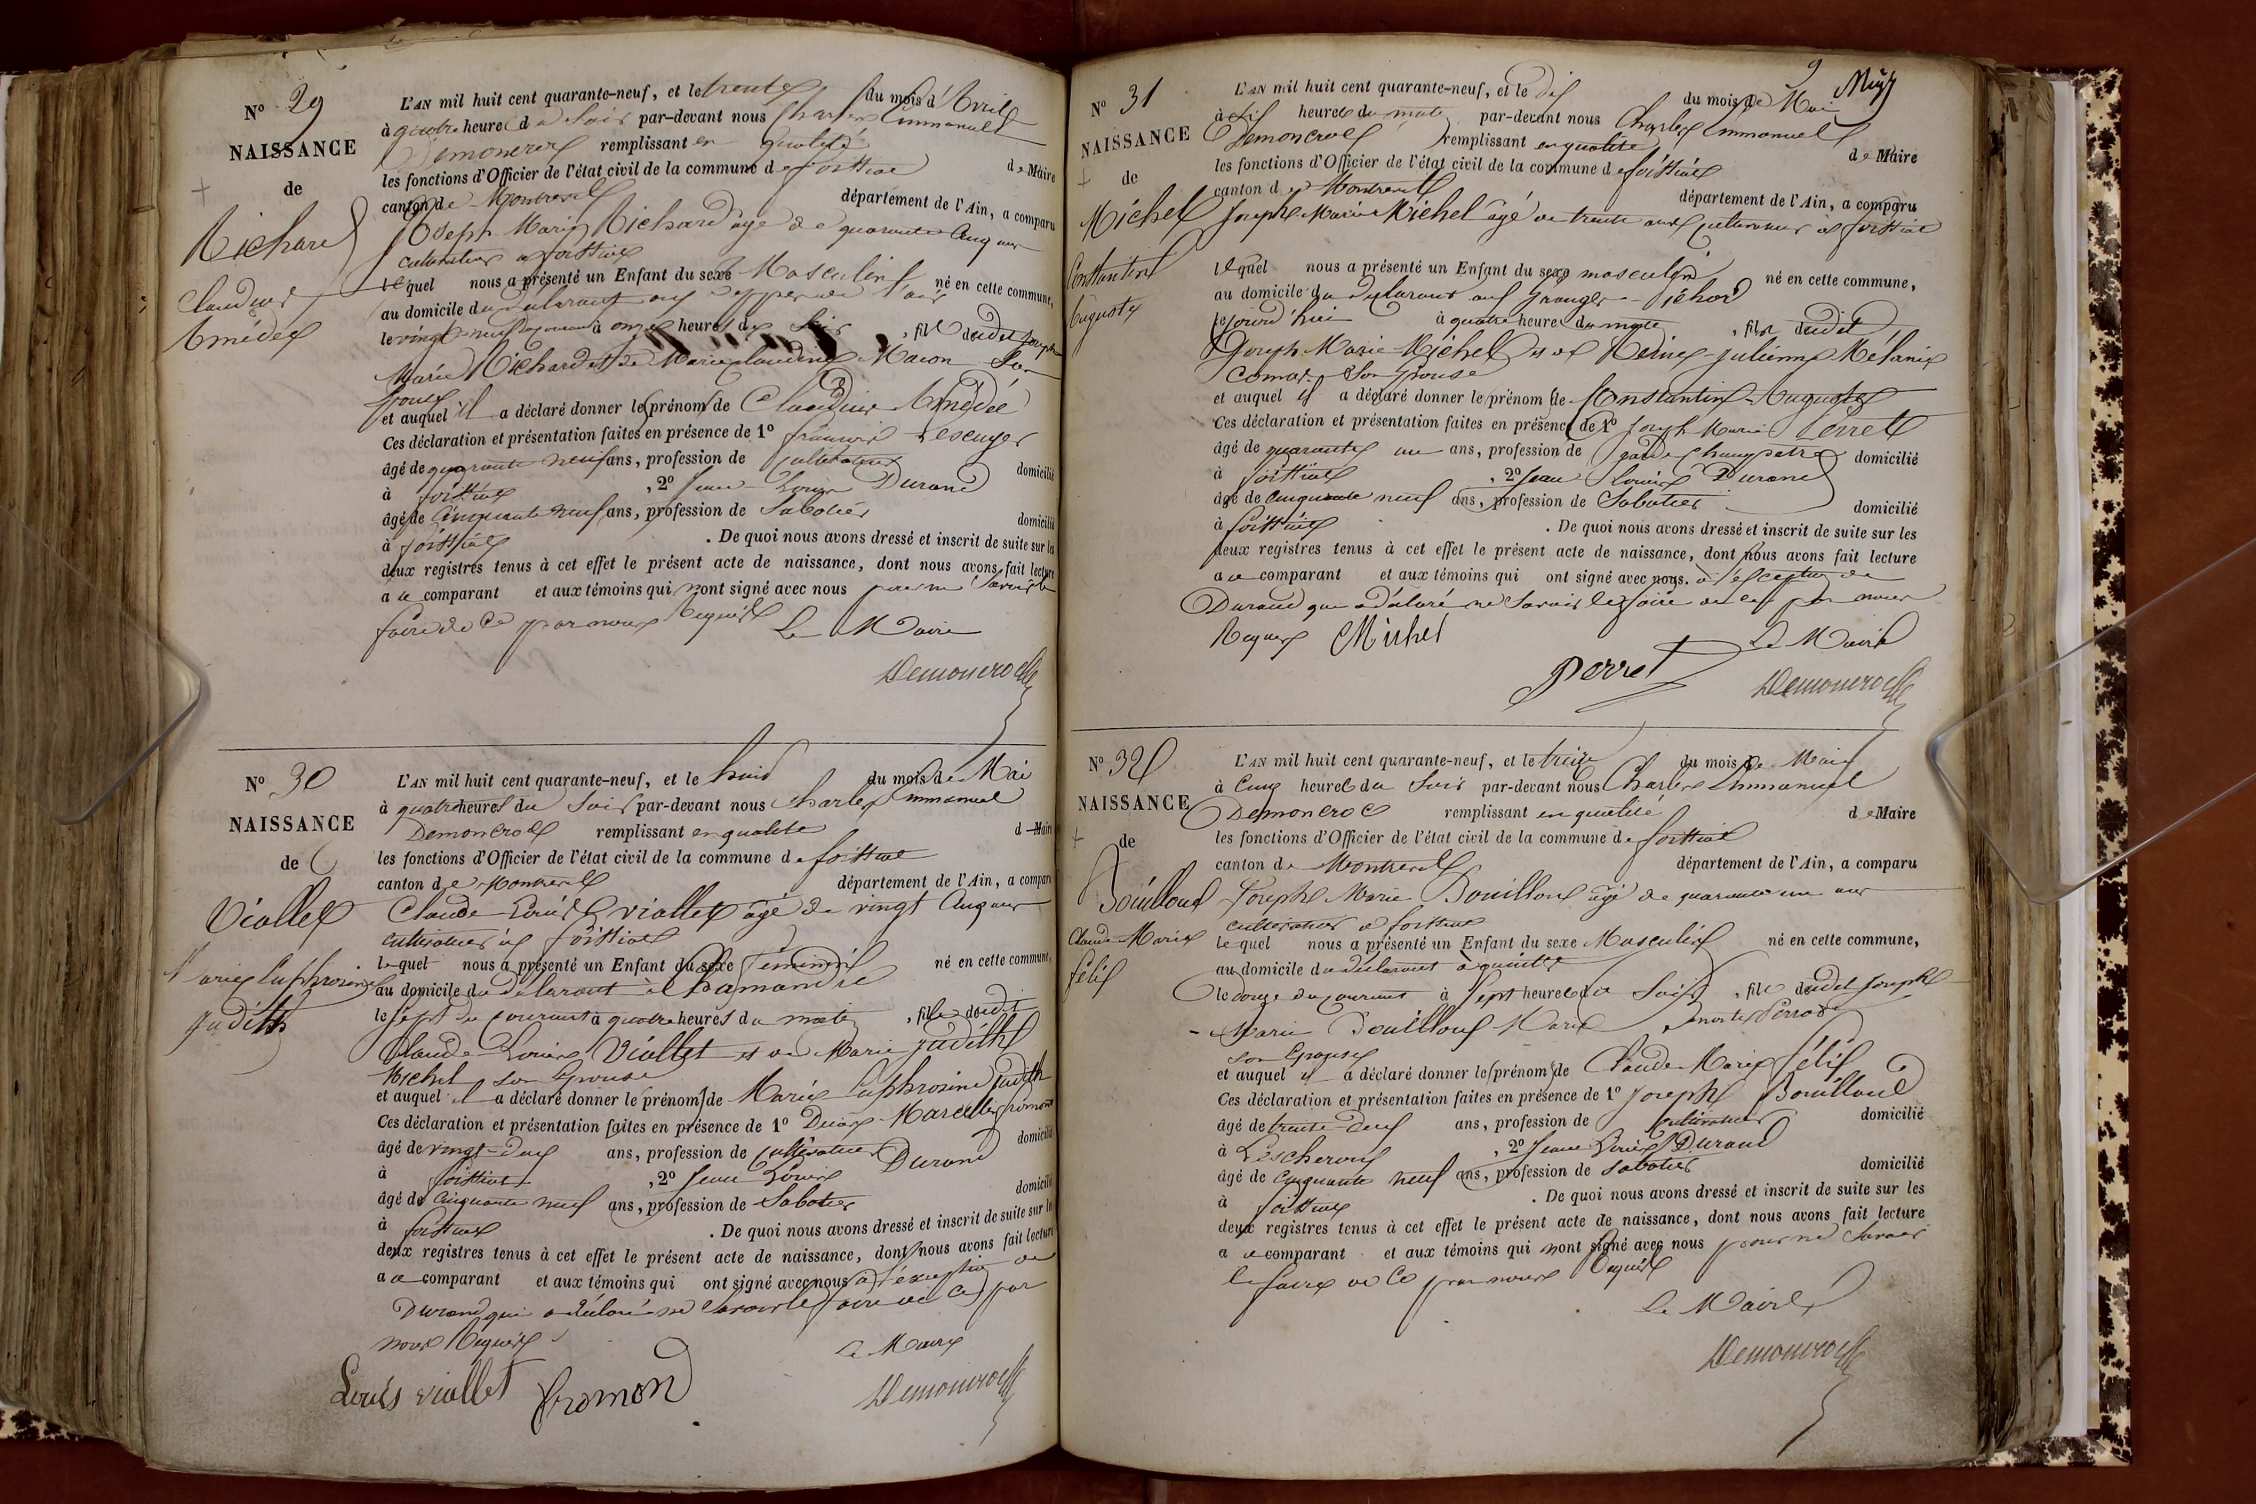 N° 29
NAISSANCE
de
Richard
Claudius
Amédée
L'AN mil huit cent quarante-neuf, et le trente du mois d'Avril
à quatre heures du soir par-devant nous Charles Emmanuel
Demoncroc remplissant en qualité de Maire
les fonctions d'Officier de l'état civil de la commune de foissiat
canton de Montrevel département de l'Ain, a comparu
Joseph Marie Richard âgé de quarante cinq ans
cultivateur à foissiat
lequel nous a présenté un Enfant du sexe Masculin né en cette commune,
au domicile du déclarant aux
le vingt neuf à onze heures du soir, fils dudit Joseph
Marie Richard et de Marie Claudine Macon Son
épouse
et auquel il a déclaré donner les prénoms de Claudius Amédée
Ces déclaration et présentation faites en présence de 1° françois Lescuyer
âgé de quarante neuf ans, profession de cultivateur domicilié
à foissiat, 2° Jean Louis Durand
âgé de Cinquante neuf ans, profession de Sabotier domicilié
à foissiat. De quoi nous avons dressé et inscrit de suite sur les
deux registres tenus à cet effet le présent acte de naissance, dont nous avons fait lecture
a ce comparant et aux témoins qui n'ont signé avec nous pour ne savoir le
faire de ce par nous Requis
Le Maire
Demoncroc
N° 30
NAISSANCE
de
Viollet
Marie Euphrosine
Judith
L'AN mil huit cent quarante-neuf, et le huit du mois de Mai
à quatre heures du Soir par-devant nous Charles Emmanuel
Demoncroc remplissant en qualité de Maire
les fonctions d'Officier de l'état civil de la commune de foissiat
canton de Montrevel département de l'Ain, a comparu
Claude Louis Viollet âgé de vingt Cinq ans
cultivateur à foissiat
lequel nous a présenté un Enfant du sexe féminin né en cette commune,
au domicile du déclarant à Chamandré
le sept du courant à quatre heures du matin, fille dudit
Claude Louis Viollet et de Marie Judith
Michel son Epouse
et auquel il a déclaré donner les prénoms de Marie Euphrosine Judith
Ces déclaration et présentation faites en présence de 1° Marcellin fromont
âgé de vingt-deux ans, profession de cultivateur domicilié
à foissiat, 2° Jean Louis Durand
âgé de Cinquante neuf ans, profession de Sabotier domicilié
à foissiat. De quoi nous avons dressé et inscrit de suite sur les
deux registres tenus à cet effet le présent acte de naissance, dont nous avons fait lecture
a ce comparant et aux témoins qui ont signé avec nous à l'exception de
Durand qui a déclaré ne savoir le faire de ce par
nous Requis
Le Maire
Louis viollet fromon Demoncroc
9
N° 31
NAISSANCE
de
Michel
Constantin
Auguste
L'AN mil huit cent quarante-neuf, et le dix du mois de Mai
à dix heures du matin par-devant nous Charles Emmanuel
Demoncroc remplissant en qualité de Maire
les fonctions d'Officier de l'état civil de la commune de foissiat
canton de Montrevel département de l'Ain, a comparu
Joseph Marie Michel âgé de trente ans cultivateur à foissiat
lequel nous a présenté un Enfant du sexe masculin né en cette commune,
au domicile du déclarant aux granges
le jourd'hui à quatre heures du matin, fils dudit
Joseph Marie Michel et de Reine Julienne Mélanie
Comas Son Epouse
et auquel il a déclaré donner les prénoms de Constantin Auguste
Ces déclaration et présentation faites en présence de 1° Joseph Marie Perret
âgé de quarante un ans, profession de garde champetre domicilié
à foissiat, 2° Jean Louis Durand
âgé de cinquante neuf ans, profession de Sabotier domicilié
à foissiat. De quoi nous avons dressé et inscrit de suite sur les
deux registres tenus à cet effet le présent acte de naissance, dont nous avons fait lecture
a ce comparant et aux témoins qui ont signé avec nous. à l'exception de
Durand qui a déclaré ne savoir le faire de ce par nous
Requis Michel Le Maire
perret Demoncroc
N° 32
NAISSANCE
de
Bouilloud
Claude Marie
félix
L'AN mil huit cent quarante-neuf, et le treize du mois de Mai
à Cinq heures du Soir par-devant nous Charles Emmanuel
Demoncroc remplissant en qualité de Maire
les fonctions d'Officier de l'état civil de la commune de foissiat
canton de Montrevel département de l'Ain, a comparu
Joseph Marie Bouilloud âgé de quarante un ans
cultivateur à foissiat
lequel nous a présenté un Enfant du sexe Masculin né en cette commune,
au domicile du déclarant à
le douze du courant à Sept heures du Soir, fils dudit Joseph
Marie Bouilloud Marie Perrod
son Epouse
et auquel il a déclaré donner les prénoms de Claude Marie félix
Ces déclaration et présentation faites en présence de 1° Joseph Bouilloud
âgé de trente-deux ans, profession de cultivateur domicilié
à Lescheroux, 2° Jean Louis Durand
âgé de cinquante neuf ans, profession de sabotier domicilié
à foissiat. De quoi nous avons dressé et inscrit de suite sur les
deux registres tenus à cet effet le présent acte de naissance, dont nous avons fait lecture
a ce comparant et aux témoins qui n'ont signé avec nous pour ne savoir
le faire de ce par nous Requis
Le Maire
Demoncroc